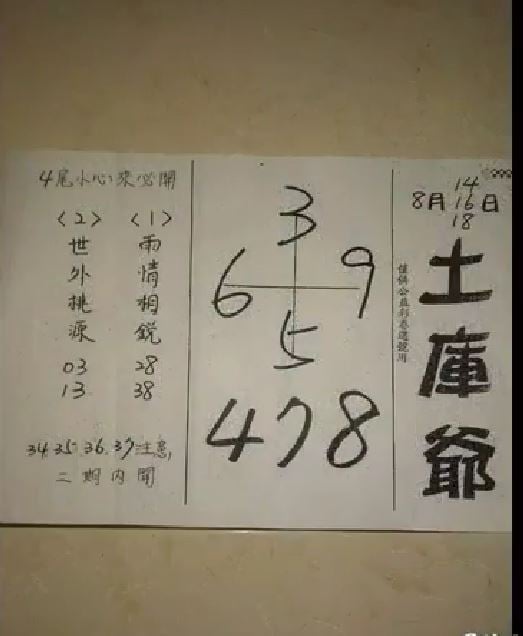 8月14 16 18日
土庫爺
僅供公益彩卷選號用
3
6 9
5
478
4尾小心來必開
〈1〉
雨情相鋭
28
38
〈2〉
世外桃源
03
13
34.35.36.37注意,
二期内開